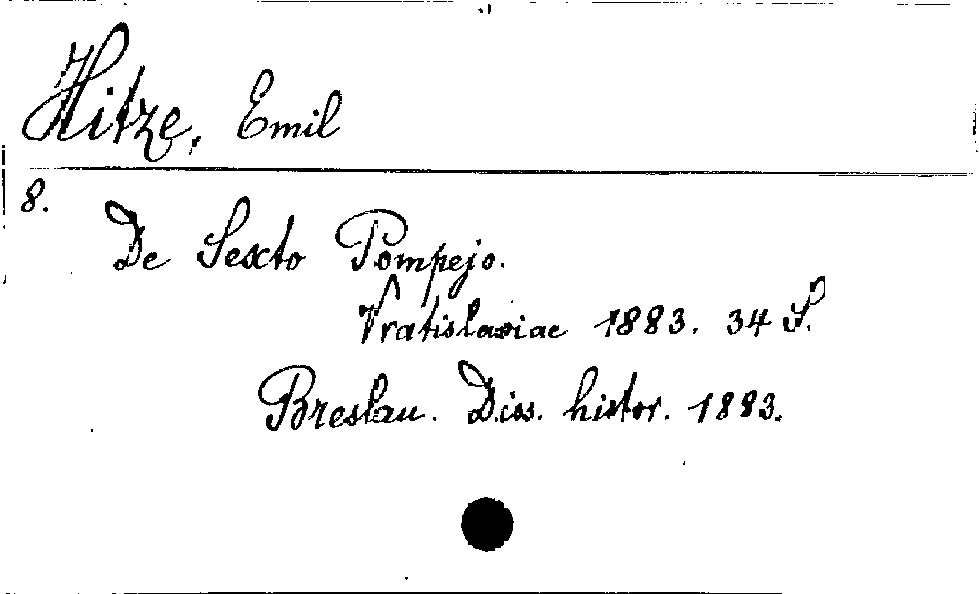 Hitze, Emil
8.
De Sexto Pompejo.
Vratislaviae 1883. 34 S.
Breslau. Diss. histor. 1883.